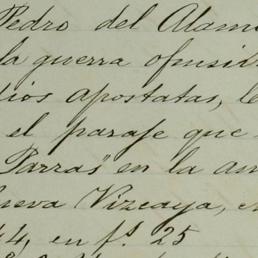 Pedro del Alam
la guerra ofensi
dios apostatas, le
el paraje que
Parras" en la an
ueva Vizcaya, e
4, en f.s 25